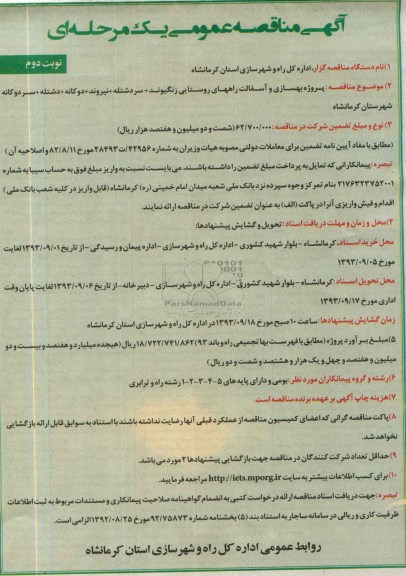 آگهی مناقصه عمومی یک مرحله‌ای
نوبت دوم
۱)نام دستگاه مناقصه گزار: اداره کل راه و شهرسازی استان کرمانشاه
۲) موضوع مناقصه: پروژه بهسازی و آسفالت راههای روستایی زنگیوند + سردشتله + نیروند + دوکانه + دشتله + سر دوکانه
شهرستان کرمانشاه
۳) نوع و مبلغ تضمین شرکت در مناقصه: ۶۲/۷۰۰/۰۰۰ (شصت و دو میلیون و هفتصد هزار ریال)
(مطابق با مفاد آیین نامه تضمین برای معاملات دولتی مصوبه هیات وزیران به شماره ۴۲۹۵۶/ت ۲۸۴۹۳ مورخ ۸۲/۸/۱۱ و اصلاحیه آن)
تبصره: پیمانکارانی که تمایل به پرداخت مبلغ تضمین را داشته باشند. می بایست نسبت به واریز مبلغ فوق به حساب سیبا به شماره
۲۱۷۶۴۲۳۷۵۲۰۰۱ بنام تمرکز وجوه سپرده نزد بانک ملی شعبه میدان امام خمینی (ره) کرمانشاه (قابل واریز در کلیه شعب بانک ملی)
اقدام و فیش واریزی آنرا در پاکت (الف) به عنوان تضمین شرکت در مناقصه ارائه نمایند.
۴) محل و زمان و مهلت دریافت اسناد: تحویل و گشایش پیشنهادها:
محل خرید اسناد: کرمانشاه - بلوار شهید کشوری - اداره کل راه و شهرسازی - اداره پیمان و رسیدگی - از تاریخ ۱۳۹۳/۰۹/۰۱ لغایت
مورخ ۱۳۹۳/۰۹/۰۵
محل تحویل اسناد: کرمانشاه - بلوار شهید کشوری - اداره کل راه و شهرسازی - دبیرخانه - از تاریخ ۱۳۹۳/۰۹/۰۶ لغایت پایان وقت
اداری مورخ ۱۳۹۳/۰۹/۱۷
ParsNamadData
زمان گشایش پیشنهادها: ساعت ۱۰ صبح مورخ ۱۳۹۳/۰۹/۱۸ در اداره کل راه و شهرسازی استان کرمانشاه
۵) مبلغ برآورد پروژه (مطابق با فهرست بها تجمیعی راه و باند ۹۳) ۱۸/۷۲۲/۷۴۱/۸۶۲ ریال (هیجده میلیارد و هفتصد و بیست و دو
میلیون و هفتصد و چهل و یک هزار و هشتصد و شصت و دو ریال)
۶) رشته و گروه پیمانکاران مورد نظر: بومی و دارای پایه های ۵-۴-۳-۲-۱ رشته راه و ترابری
۷) هزینه چاپ آگهی بر عهده برنده مناقصه است.
۸) پاکت مناقصه گرانی که اعضای کمیسیون مناقصه از عملکرد قبلی آنها رضایت نداشته باشند با استناد به سوابق قابل ارائه بازگشایی
نخواهد شد.
۹) حداقل تعداد شرکت کنندگان در مناقصه جهت بازگشایی پیشنهادها ۳ مورد می باشد.
۱۰) برای کسب اطلاعات بیشتر به سایت http://iets.mporg.ir مراجعه فرمایید.
تبصره: جهت دریافت اسناد مناقصه ارائه درخواست کتبی به انضمام گواهینامه صلاحیت پیمانکاری و مستندات مربوط به ثبت اطلاعات
ظرفیت کاری و ریالی در سامانه ساجار به استناد بند (۵) بخشنامه شماره ۹۲/۷۵۸۷۳ مورخ ۱۳۹۲/۰۸/۲۵ الزامی است.
روابط عمومی اداره کل راه و شهرسازی استان کرمانشاه